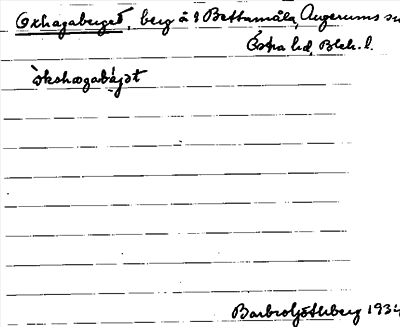 Oxhagaberget, berg å 1 Bettamåla, Augerums sn
Östra hd, Blek. l.
òkshagabǽrjət
Barbro Göthberg 1934